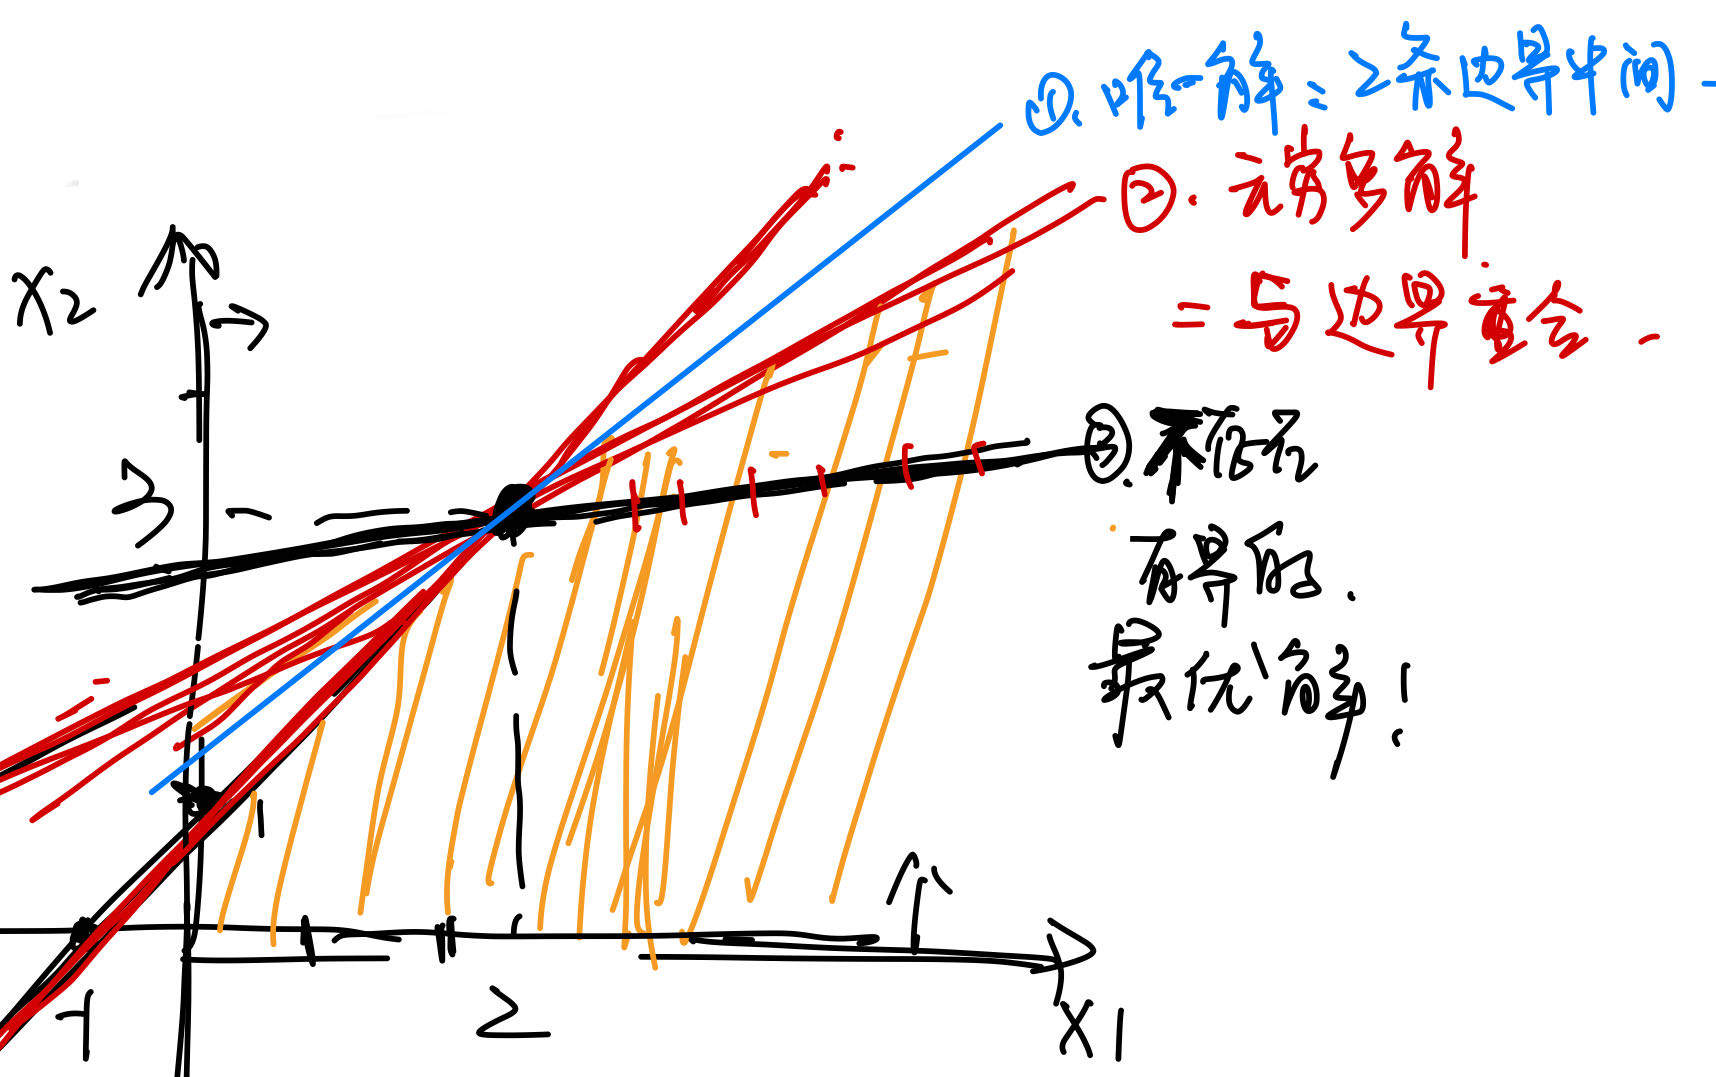 ①. 唯一解 = 2条边界中间
②. 无穷多解
= 与边界重合.
③. 不存在
有界的.
最优解!
X2
3
1
-1
2
X1